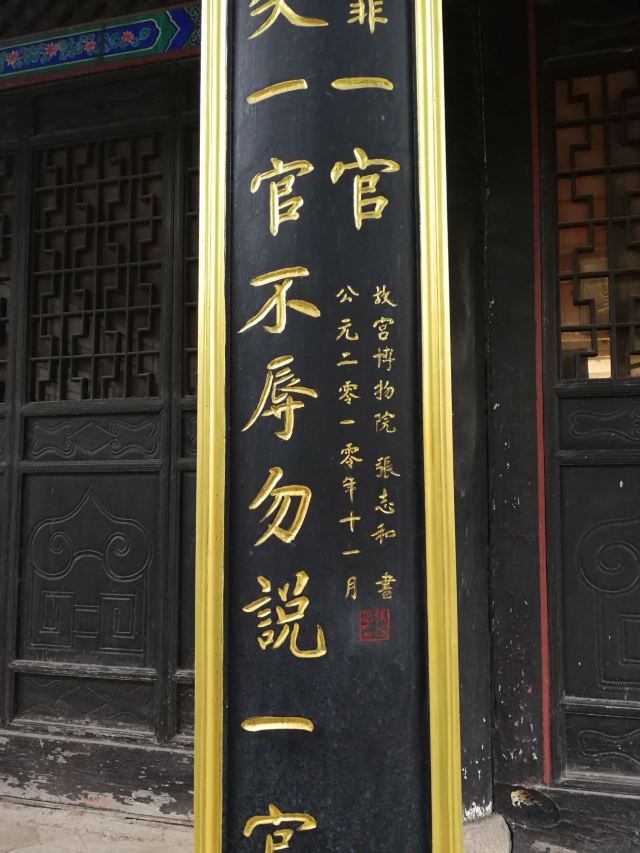 失一官不辱勿説一官
靠一官
公元二零一零年十一月
故宮博物院 張志和 書